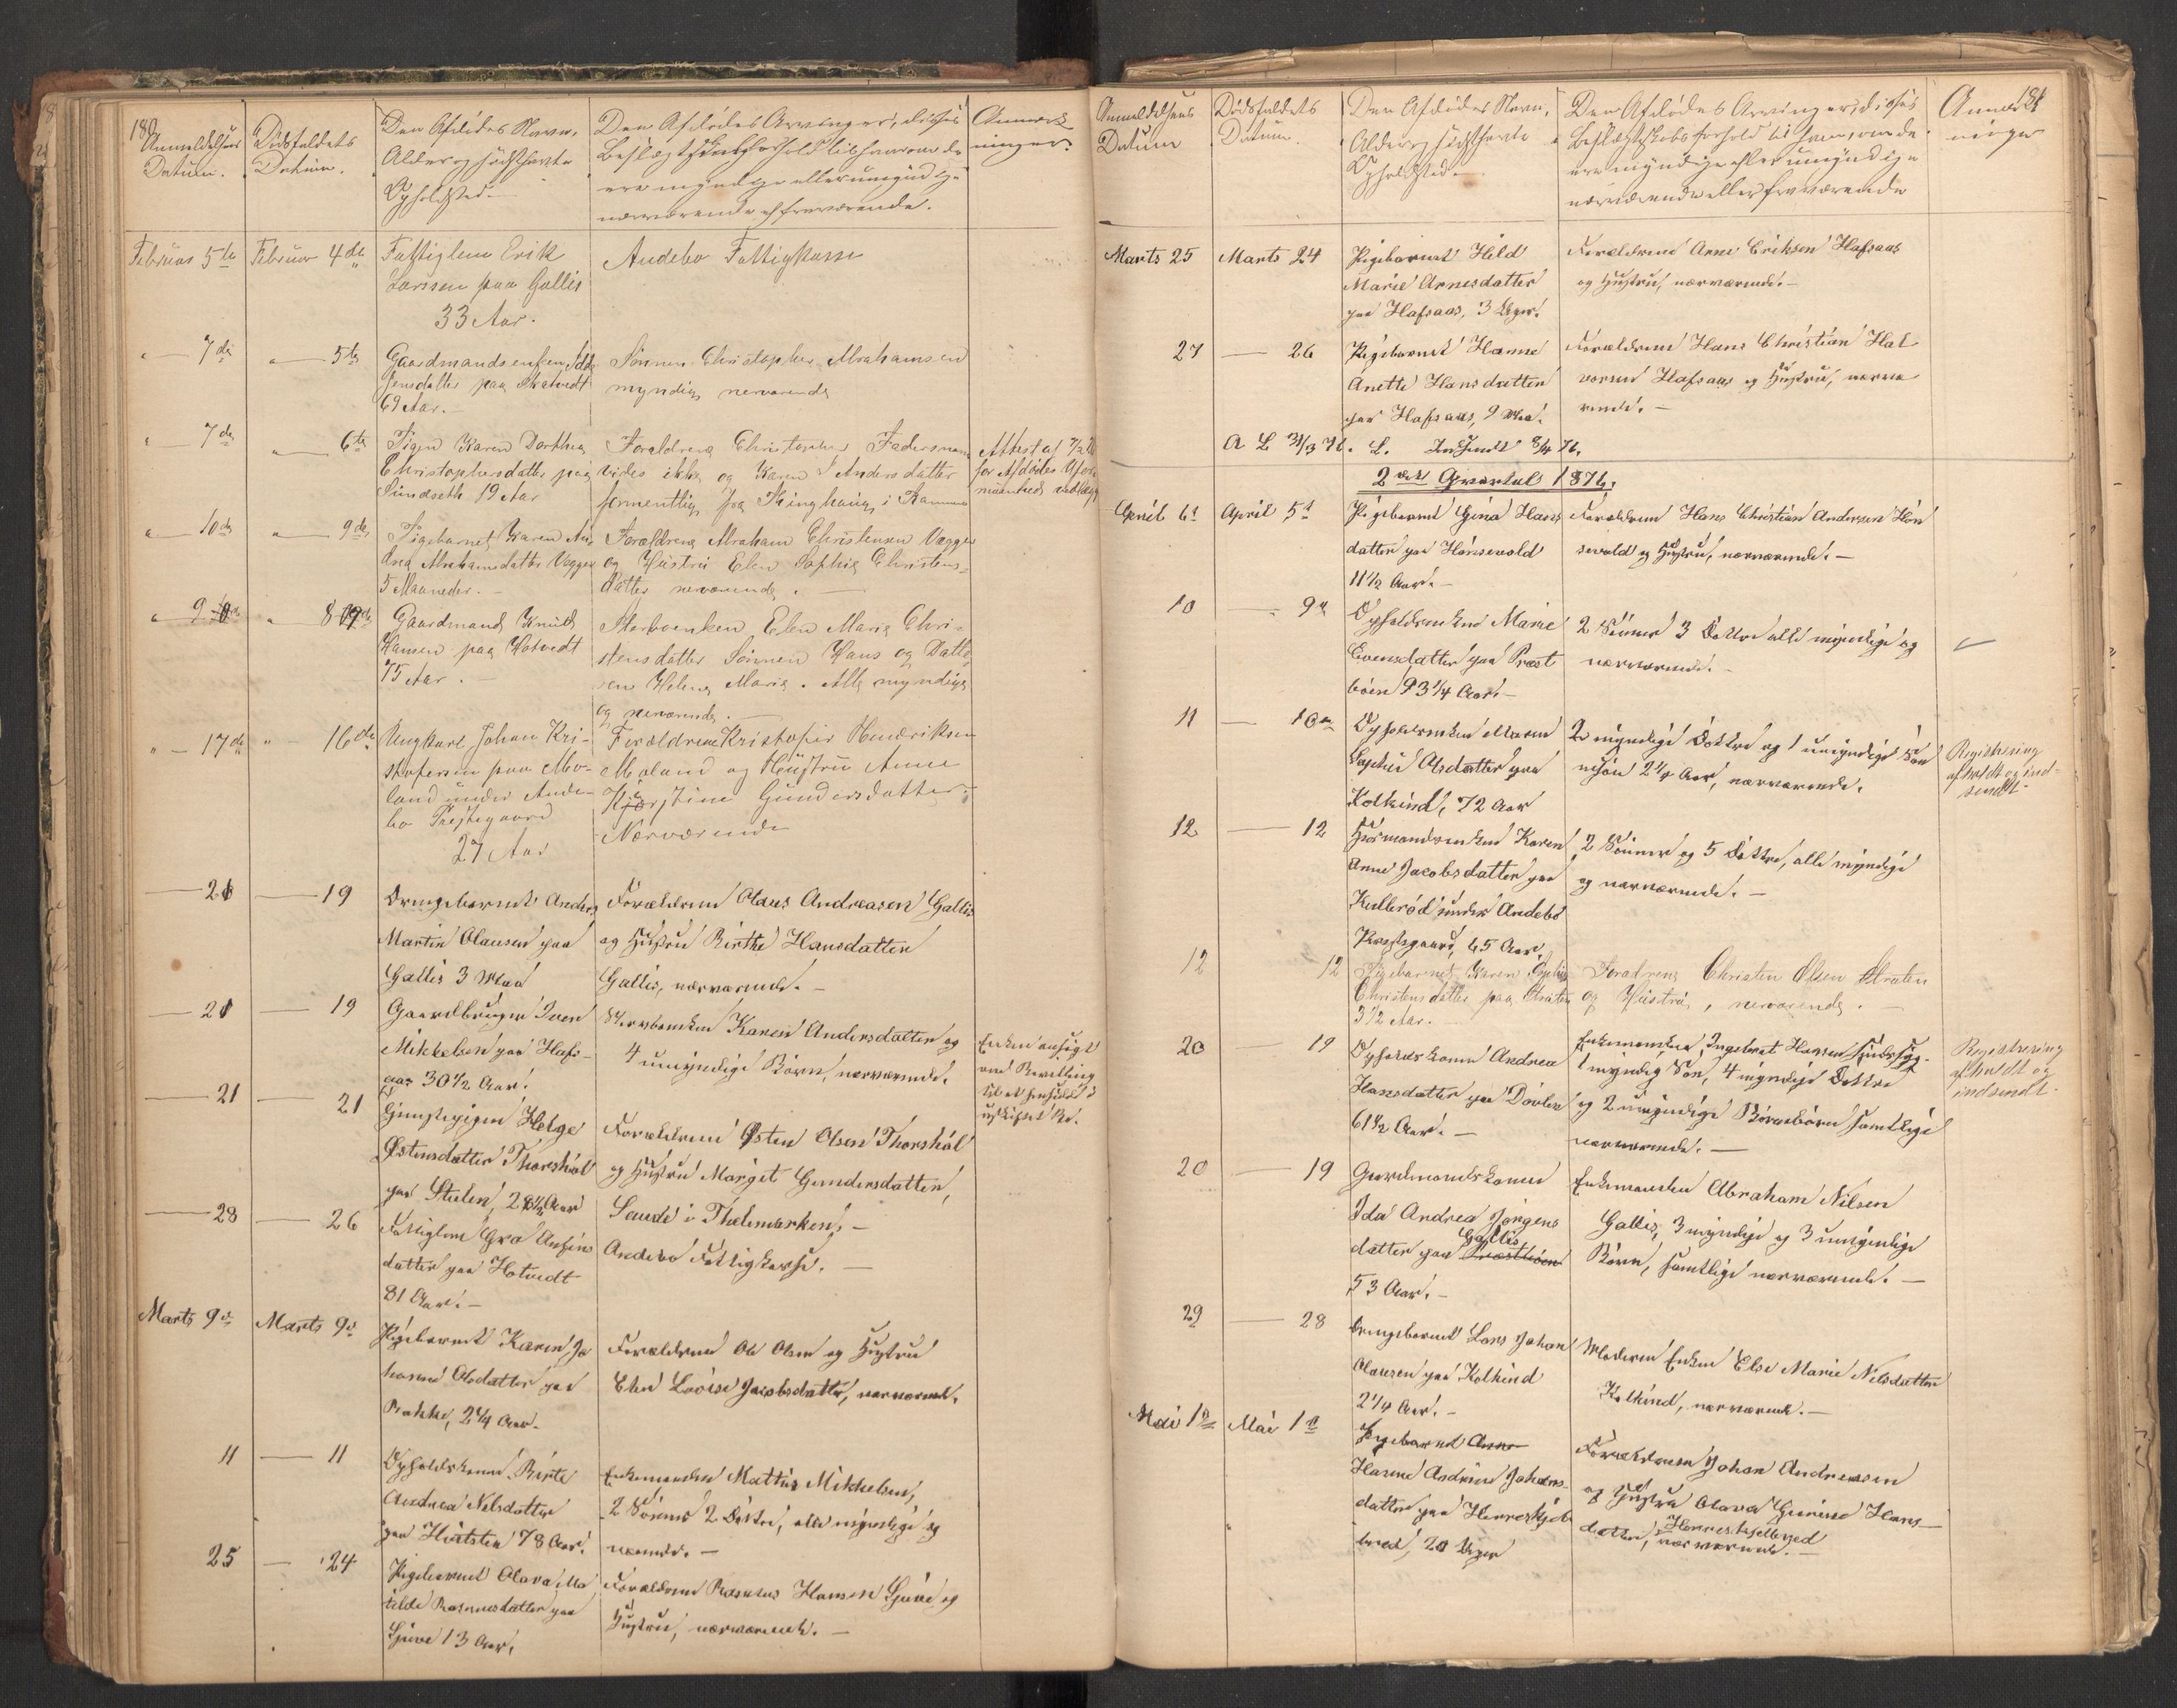 180
Anmeldelsens
Datum.
Dødsfaldets
Datum.
Den Afdødes Navn,
Alder og sidsthavte
Opholdsted.
Den Afdødes Arvinger, disses
Beslægtskabsforhold til ham, om de
ere myndige eller umyndige
nærværende el fraværende.
Anmærk
ninger.
Februar 5te Februar 4de Fattiglem Erik
Larssen paa Gallis
33 Aar.
Andebo Fattigkasse
" 7de " 5te Gaardmandsenken
Jensdatter paa
69 Aar.
Sønnen Christopher Abrahamsen
myndig nerværende
" 7de " 6te Pigen Karen Dorthea
Christophersdatter paa
Sundseth 19 Aar
Foraldrene Christopher Fadersnavn
vides ikke og Karen Andersdatter
formentlig paa Kinghaug i Ramnes
Attest af
for Afdødes
" 10de " 9de Pigebarnet Karen An-
drea Abrahamsdatter Vegger
5 Maaneder.
Forældrene Abraham Christensen Vegger
og Hustru Elen Sophie Christens-
datter nerværende.
" 9 " 8 Gaardmand Knud
Hansen paa Hotvedt
75 Aar.
Sterboenken Elen Marie Chri-
stensdatter Sønnen Hans og Datte-
ren Helene Marie. Alle myndige
og nerværende.
" 17de " 16de Ungkarl Johan Kri-
stofersen paa Mo-
land under Ande-
bo Præstegaard
27 Aar
Forældrene Kristofer Hendriksen
Moland og Hustru Anne
Kjerstine Gundersdatter.
Nærværende
21 19 Drengebarnet Anders
Martin Olausen paa
Gallis 3 Maa
Forældrene Olaus Andreasen Gallis
og Hustru Birthe Hansdatter
Gallis, nærværende.
21 19 Gaardbruger Iver
Mikkelsen paa Hafs-
aas 30 1/2 Aar.
Sterboenken Karen Andersdatter og
4 umyndige Børn, nærværende.
Enken ansøgt
om Bevilling
til at hensidde i
uskiftet Bo.
21 21 Tjenestepigen Helge
Østensdatter Thorshöl
paa Stulen, Aar
Forældrene Østen Olsen Thorshöl
og Hustru Margit Gundersdatter,
Saude i Thelemarken.
28 26 Fattiglem Gro
datter paa Hotvedt
81 Aar.
Andebo Fattigkasse.
Marts 9de Marts 9de Pigebarnet Karen Jo
hanne Olsdatter paa
Bakke, 2 1/4 Aar.
Forældrene Ole Olsen og Hustru
Elen Lovise Jacobsdatter, nærværende.
11 11 Opholdskone Birte
Andrea Nilsdatter
paa Hvitsten 78 Aar.
Enkemanden Mattis Mikkelsen,
2 Sønner 2 Døttre, alle myndige og
nærværende.
25 24 Pigebarnet Olava Ma
tilde Rasmusdatter paa
Gjuve 13 Aar.
Forældrene Rasmus Hansen Gjuve og
Hustru, nærværende.
181
Anmeldelsens
Datum
Dødsfaldets
Datum.
Den Afdødes Navn,
Alder og sidsthavte
Opholdsted.
Den Afdødes Arvinger, disses
Beslægtskabsforhold til ham, om de
ere myndige eller umyndige
nærværende eller fraværende
Anmærk
ninger
Marts 25 Marts 24 Pigebarnet Hild
Marie Arnesdatter
paa Hafsaas, 3 Uger.
Forældrene Arne Eriksen Hafsaas
og Hustru, nærværende.
27 26 Pigebarnet Hanne
Anette Hansdatter
paa Hafsaas, 9 Maa.
Forældrene Hans Christian Hal
vorsen Hafsaas og Hustru, nærvæ
rende.
A L 31/3 76. L. Indsendt 8/4 76.
2det Qvartals 1876.
April 6te April 5te Pigebarnet Gina Hans
datter paa Hönsevold
11 1/2 Aar.
Forældrene Hans Christian Andersen Hön
sevold og Hustru, nærværende.
10 9de Opholdsenken Marie
Evensdatter paa Præst
böen 93 1/4 Aar.
2 Sønner 3 Døttre alle myndige og
nærværende.
11 10de Opholdsenken Maren
Sophie Olsdatter paa
Kolkind, 72 Aar
2 myndige Døttre og 1 umyndige Søn
nesøn 2 1/4 Aar, nærværende.
Registrering
afholdt og ind-
sendt.
12 12 Husmandsenken Karen
Anne Jacobsdatter paa
Kulleröd under Andebo
Præstegaard, 65 Aar.
2 Sønner og 5 Døttre, alle myndige
og nærværende.
12 12 Pigebarnet Karen Sophie
Christensdatter paa Straten
3 1/2 Aar.
Foraldrene Christen Olsen Straten
og Hustru, nerværende.
20 19 Opholdskonen Andrea
Hansdatter paa Dövlen
61 1/2 Aar.
Enkemanden Ingebret Hansen
1 myndig Søn, 4 myndige Døttre
og 2 umyndige Børnebørn samtlige
nærværende.
Registrering
afholdt og
indsendt.
20 19 Gaardmandskonen
Ida Andrea Jörgens
Gallis
datter paa Præstböen
53 Aar.
Enkemanden Abraham Nilsen
Gallis, 3 myndige og 3 umyndige
Børn, samtlige nærværende.
29 28 Drengebarnet Lars Johan
Olausen paa Kolkind
2 1/4 Aar.
Moderen Enken Else Marie Nilsdatter
Kolkind, nærværende.
Mai 1te Mai 1te Pigebarnet Anne
Hanne Andrine Johans-
datter paa Herreskjel
bred, 20 Uger
Forældrene Johan Andreassen
og Hustru Olava Gurine Hans-
datter, Herreskjelbred
nærværende.